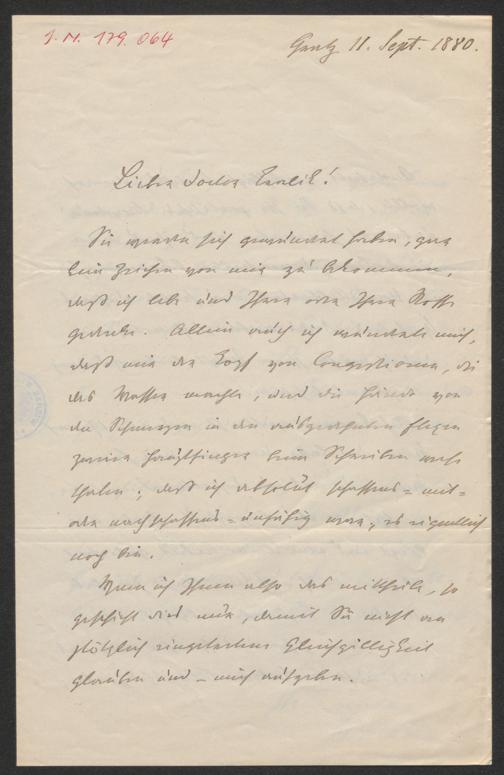 I. N. 179.064
Graz 11. Sept. 1880.
Lieber Doctor !
Sie werden sich gewundert haben, gar
kein Zeichen von mir zu bekommen,
daß ich lebe und Ihrer oder Ihres
gedenke. Allein auch ich wundere mich,
daß mir der Kopf von Congestionen, die
das Wasser machte, und die Hände von
den Schmerzen in den
zweier Hauptfinger beim Schreiben weh
thaten, daß ich absolut schaffens- mit-
oder nachschaffens-unfähig war, es eigentlich
noch bin.
Wenn ich Ihnen also das mittheile, so
geschieht dies nur, damit Sie nicht an
plötzlich eingetretene Gleichgilligkeit
glauben und – mich aufgeben.